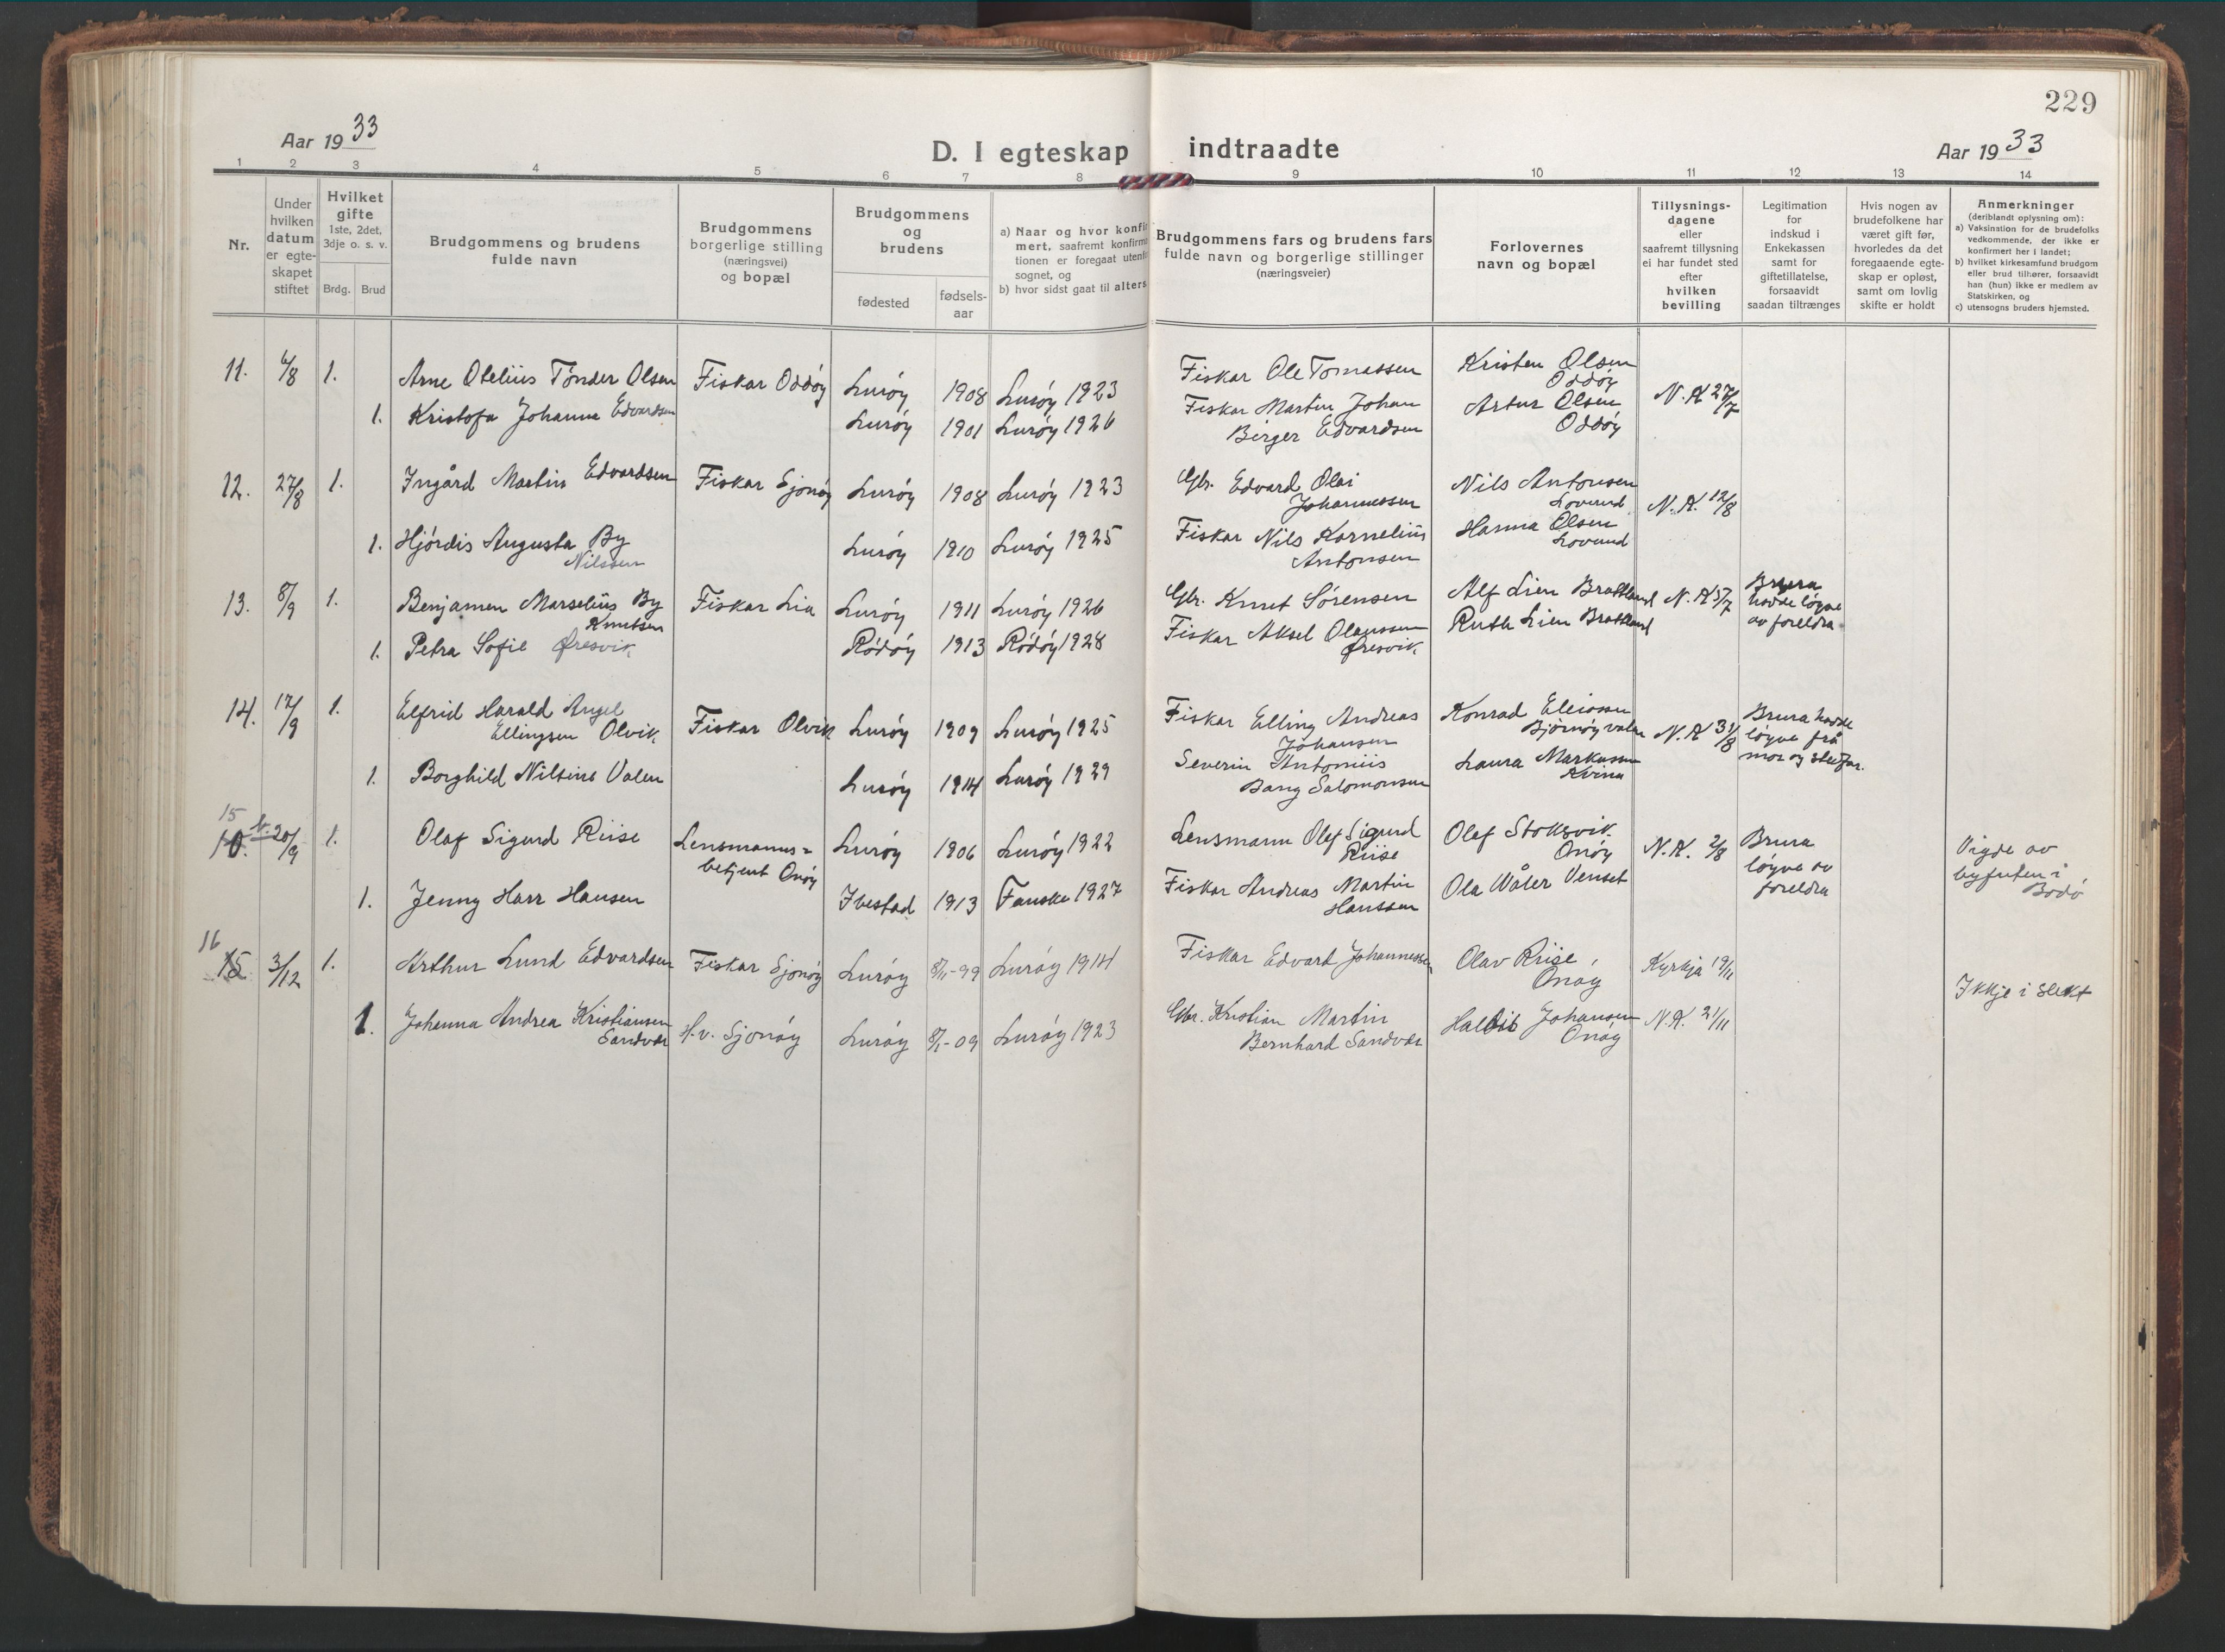 229
Aar 1933
D. I egteskap indtraadte
Aar 1933
1 2 3 4 5 6 7 8 9 10 11 12 13 14
Nr.
Under hvilken datum er egte-skapet stiftet
Hvilket gifte 1ste, 2det, 3dje o. s. v.
Brdg. Brud
Brudgommens og brudens fulde navn
Brudgommens borgerlige stilling (næringsvei) og bopæl
Brudgommens og brudens
fødested
fødsels-aar
a) Naar og hvor konfir
mert, saafremt konfirma
tionen er foregaat utenfor
sognet, og
b) hvor sidst gaat til alters
Brudgommens fars og brudens fars
fulde navn og borgerlige stillinger
(næringsveier)
Forlovernes
navn og bopæl
Tillysnings-
dagene
eller
saafremt tillysning
ei har fundet sted
efter
hvilken
bevilling
Legitimation
for
indskud i
Enkekassen
samt for
giftetillatelse,
forsaavidt
saadan tiltrænges
Hvis nogen av
brudefolkene har
været gift før,
hvorledes da det
foregaaende egte-
skap er opløst,
samt om lovlig
skifte er holdt
Anmerkninger
(deriblandt oplysning om):
a) Vaksination for de brudefolks
vedkommende, der ikke er
konfirmert her i landet;
b) hvilket kirkesamfund brudgom
eller brud tilhører, forsaavidt
han (hun) ikke er medlem av
Statskirken, og
c) utensogns bruders hjemsted.
11. 6/8 1. Arne Otelius Tönder Olsen Fiskar Oddöy Luröy 1908 Luröy 1923 Fiskar Ole Tomassen Kristen Olsen Oddöy N.K 27/7
1. Kristofa Johanna Edvardsen Luröy 1901 Luröy 1926 Fiskar Martin Johan Birger Edvardsen Artur Olsen Oddöy
12. 27/8 1. Ingård Martin Edvardsen Fiskar Sjonöy Luröy 1908 Luröy 1923 Gbr. Edvard Olai Johannessen Nils Antonsen Lovund N.K. 12/8
1. Hjördis Augusta By Nilssen Luröy 1910 Luröy 1925 Fiskar Nils Kornelius Antonsen Hanna Olsen Lovund
13. 8/9 1. Benjamen Marselius By Knutsen Fiskar Lia Luröy 1911 Luröy 1926 Gbr. Knut Sörensen Alf Lien Bratland N.K 5/7 Brura hadde löyve av foreldra
1. Petra Sofie Øresvik Rödöy 1913 Rödöy 1928 Fiskar Aksel Olaussen Øresvik Ruth Lien Bratland
14. 17/9 1. Elfrid Harald Angel Ellingsen Olvik Fiskar Olvik Luröy 1909 Luröy 1925 Fiskar Elling Andreas Johansen Konrad Eliassen Björnöyvalen N.K 31/8 Brura hadde löyve frå mor og stefar.
1. Borghild Nilsine Valen Luröy 1914 Luröy 1929 Severin Antonius Bang Salomonsen Laura Markussen Kvina
15 10. 20/9 1. Olaf Sigurd Riise Lensmanns=betjent Onöy Luröy 1906 Luröy 1922 Lensmann Olaf Sigurd Riise Olaf Stoksvik Onöy N.K. 2/8 Brura löyve av foreldra Vigde av byfuten i Bodö
1. Jenny Harr Hansen Ibestad 1913 Fauske 1927 Fiskar Andreas Martin Hanssen Ola Wåler Venset
16 15 3/12 1. Arthur Lund Edvardsen Fiskar Sjonöy Luröy 8/11-99 Luröy 1914 Fiskar Edvard Johannessen Olav Riise, Onöy Kyrkja 19/11 Ikkje i slekt
1. Johanna Andrea Kristiansen Sandvær H.v. Sjonöy Luröy 8/1-09 Luröy 1923 Gbr. Kristian Martin Bernhard Sandvær Haldis Johansen Onöy N.K. 21/11